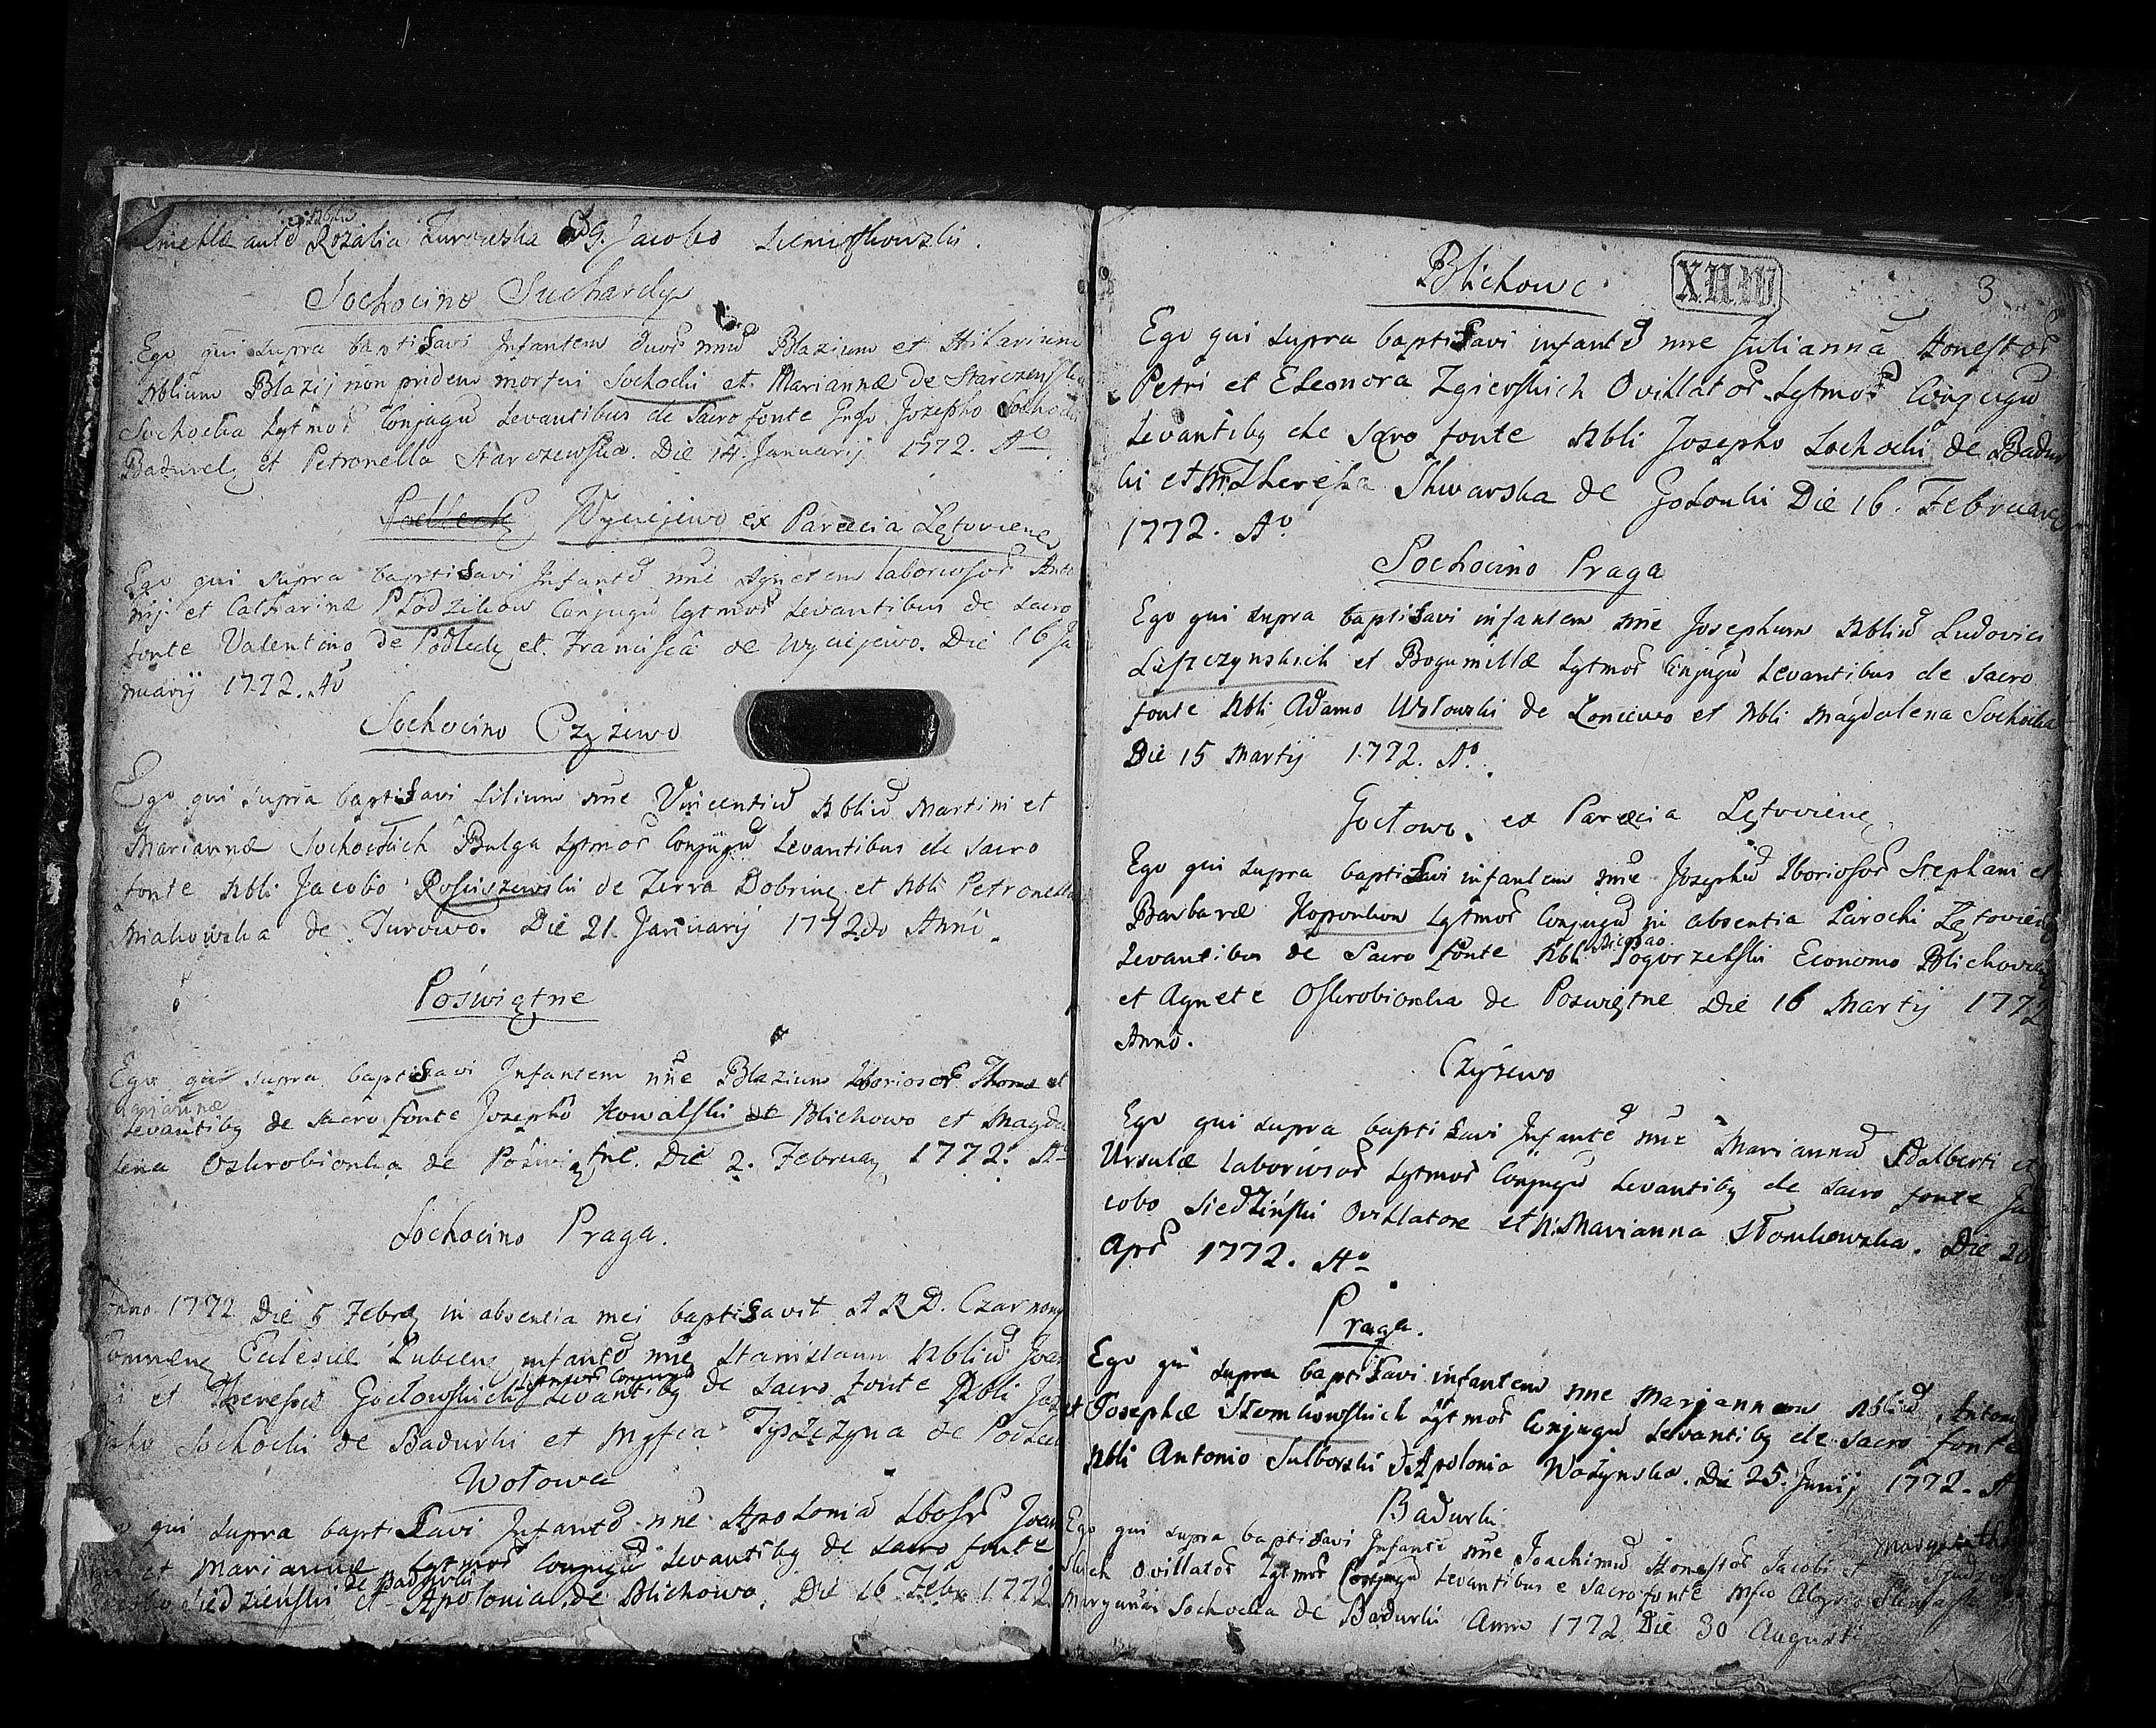 Rozalia Zurawska G. Jacobo
Sochocino Suchardy
Ego qui supra baptisavi Infantem duor nne Blazium et Hilarium
Nblium Blazij non pridem mortui Sochocki et Mariannæ de Starczewska
Sochocka Lgtmor Conjugū Levantibus de Sacro fonte Josepho Sochocki
Badurek et Petronella Starczewska. Die 14. Januarij 1772. Ao
Wyciejewo ex Paræcia Lętoviens
Ego qui supra baptisavi Infantē nne Agnetem laboriosor Anto
nij et Catharinæ Płodzikow Conjugū lgtmor Levantibus de sacro
fonte Valentino de Podleck et Francisca de Wyciejewo. Die 16 Ja
nuarij 1772. Ao
Sochocino Czyżewo
Ego qui supra baptisavi filium nne Vincentiū Nbliū Martini et
Mariannæ Sochockich Bulga Lgtmor Conjugū Levantibus de sacro
fonte Nbli Jacobo Rosciszewski de Terra Dobrine et Nbli Petronella
Makowska de Turowo. Die 21. Januarij 1772do Anni.
Poświętne
Ego qui supra baptisavi Infantem nne Blazium Lboriosor Thomæ et
Mariannæ
Levantibg de sacro fonte Josepho Kowalski de Blichowo et Magda
lena Oskrobionka de Poświętne. Die 2. Februar 1772. Ao
Sochocino Praga.
Anno 1772 Die 5 Febr in absentia mei baptisavit A R D. Czarnom
Commen Eclesiæ infantē nne Stanislaum Nbliū Joan
Lgtmor Conjugū
et Theresiæ Goctowskich Levantibg de sacro fonte Nbli Jos
Sochocki de Badurki et Mgfca de
Wołowa
qui supra baptisavi Infantē nne Apoloniā Lbosr Joan
et Mariannæ Lgtmor Conjugū Levantibg de sacro fonte
de Badurki
Siedzieński et Apolonia de Blichowo. Die 16 Febr 1772
Blichowo
XII.III
3
Ego qui supra baptisavi infantē nne Juliannā Honestor
Petri et Eleonora Zgierskich Ovillator Lgtmor Conjugū
Levantibg de Sacro fonte Nbli Josepho Sochocki de Badur
ki et M. Theresia Skwarska de Golonki Die 16. Februar
1772. Ao.
Sochocino Praga
Ego qui supra baptisavi infantem nne Josephum Nbliū Ludovici
Luszczynskich et Bogumillæ Lgtmor Conjugū Levantibus de Sacro
fonte Nbli Adamo Wołowski de Zoncewo et Nbli Magdalena Sochocka
Die 15 Martij 1772. Ao.
Goctowo. ex Paræcia Lętoviens
Ego qui supra baptisavi infantem nne Josephū Lboriosor Stephani et
Barbaræ Koponkow Lgtmor Conjugū in absentia Parochi Lętoviens
Nicolao
Levantibus de Sacro fonte Nbli Pogorzelski Economo Blichovien
et Agnete Oskrobionka de Poswiętne Die 16 Martij 1772
Anno.
Czyżewo
Ego qui supra baptisavi Infantē nne Mariannā Adalberti et
Ursulæ laboriosor Lgtmor Conjugū Levantibg de sacro fonte Ja
cobo Siedziński Ovillatore et N. Marianna Słomkowska. Die 20
Apr 1772. Ao
Praga.
Ego qui supra baptisavi infantem nne Mariannam Nbliū Antoni
et Josephæ Słomkowskich Lgtmor Conjugū Levantibg de sacro fonte
Nbli Antonio Sulborski et Apolonia Wolynska. Die 25. Junij 1772. A
Badurki
Ego qui supra baptisavi Infantē nne Joachimū Honestor Jacobi et
skich Ovillator Lgtmor Conjugū Levantibus e Sacro fonte Mfco
Maryanna Sochocka de Badurki Anno 1772 Die 30 Augusti